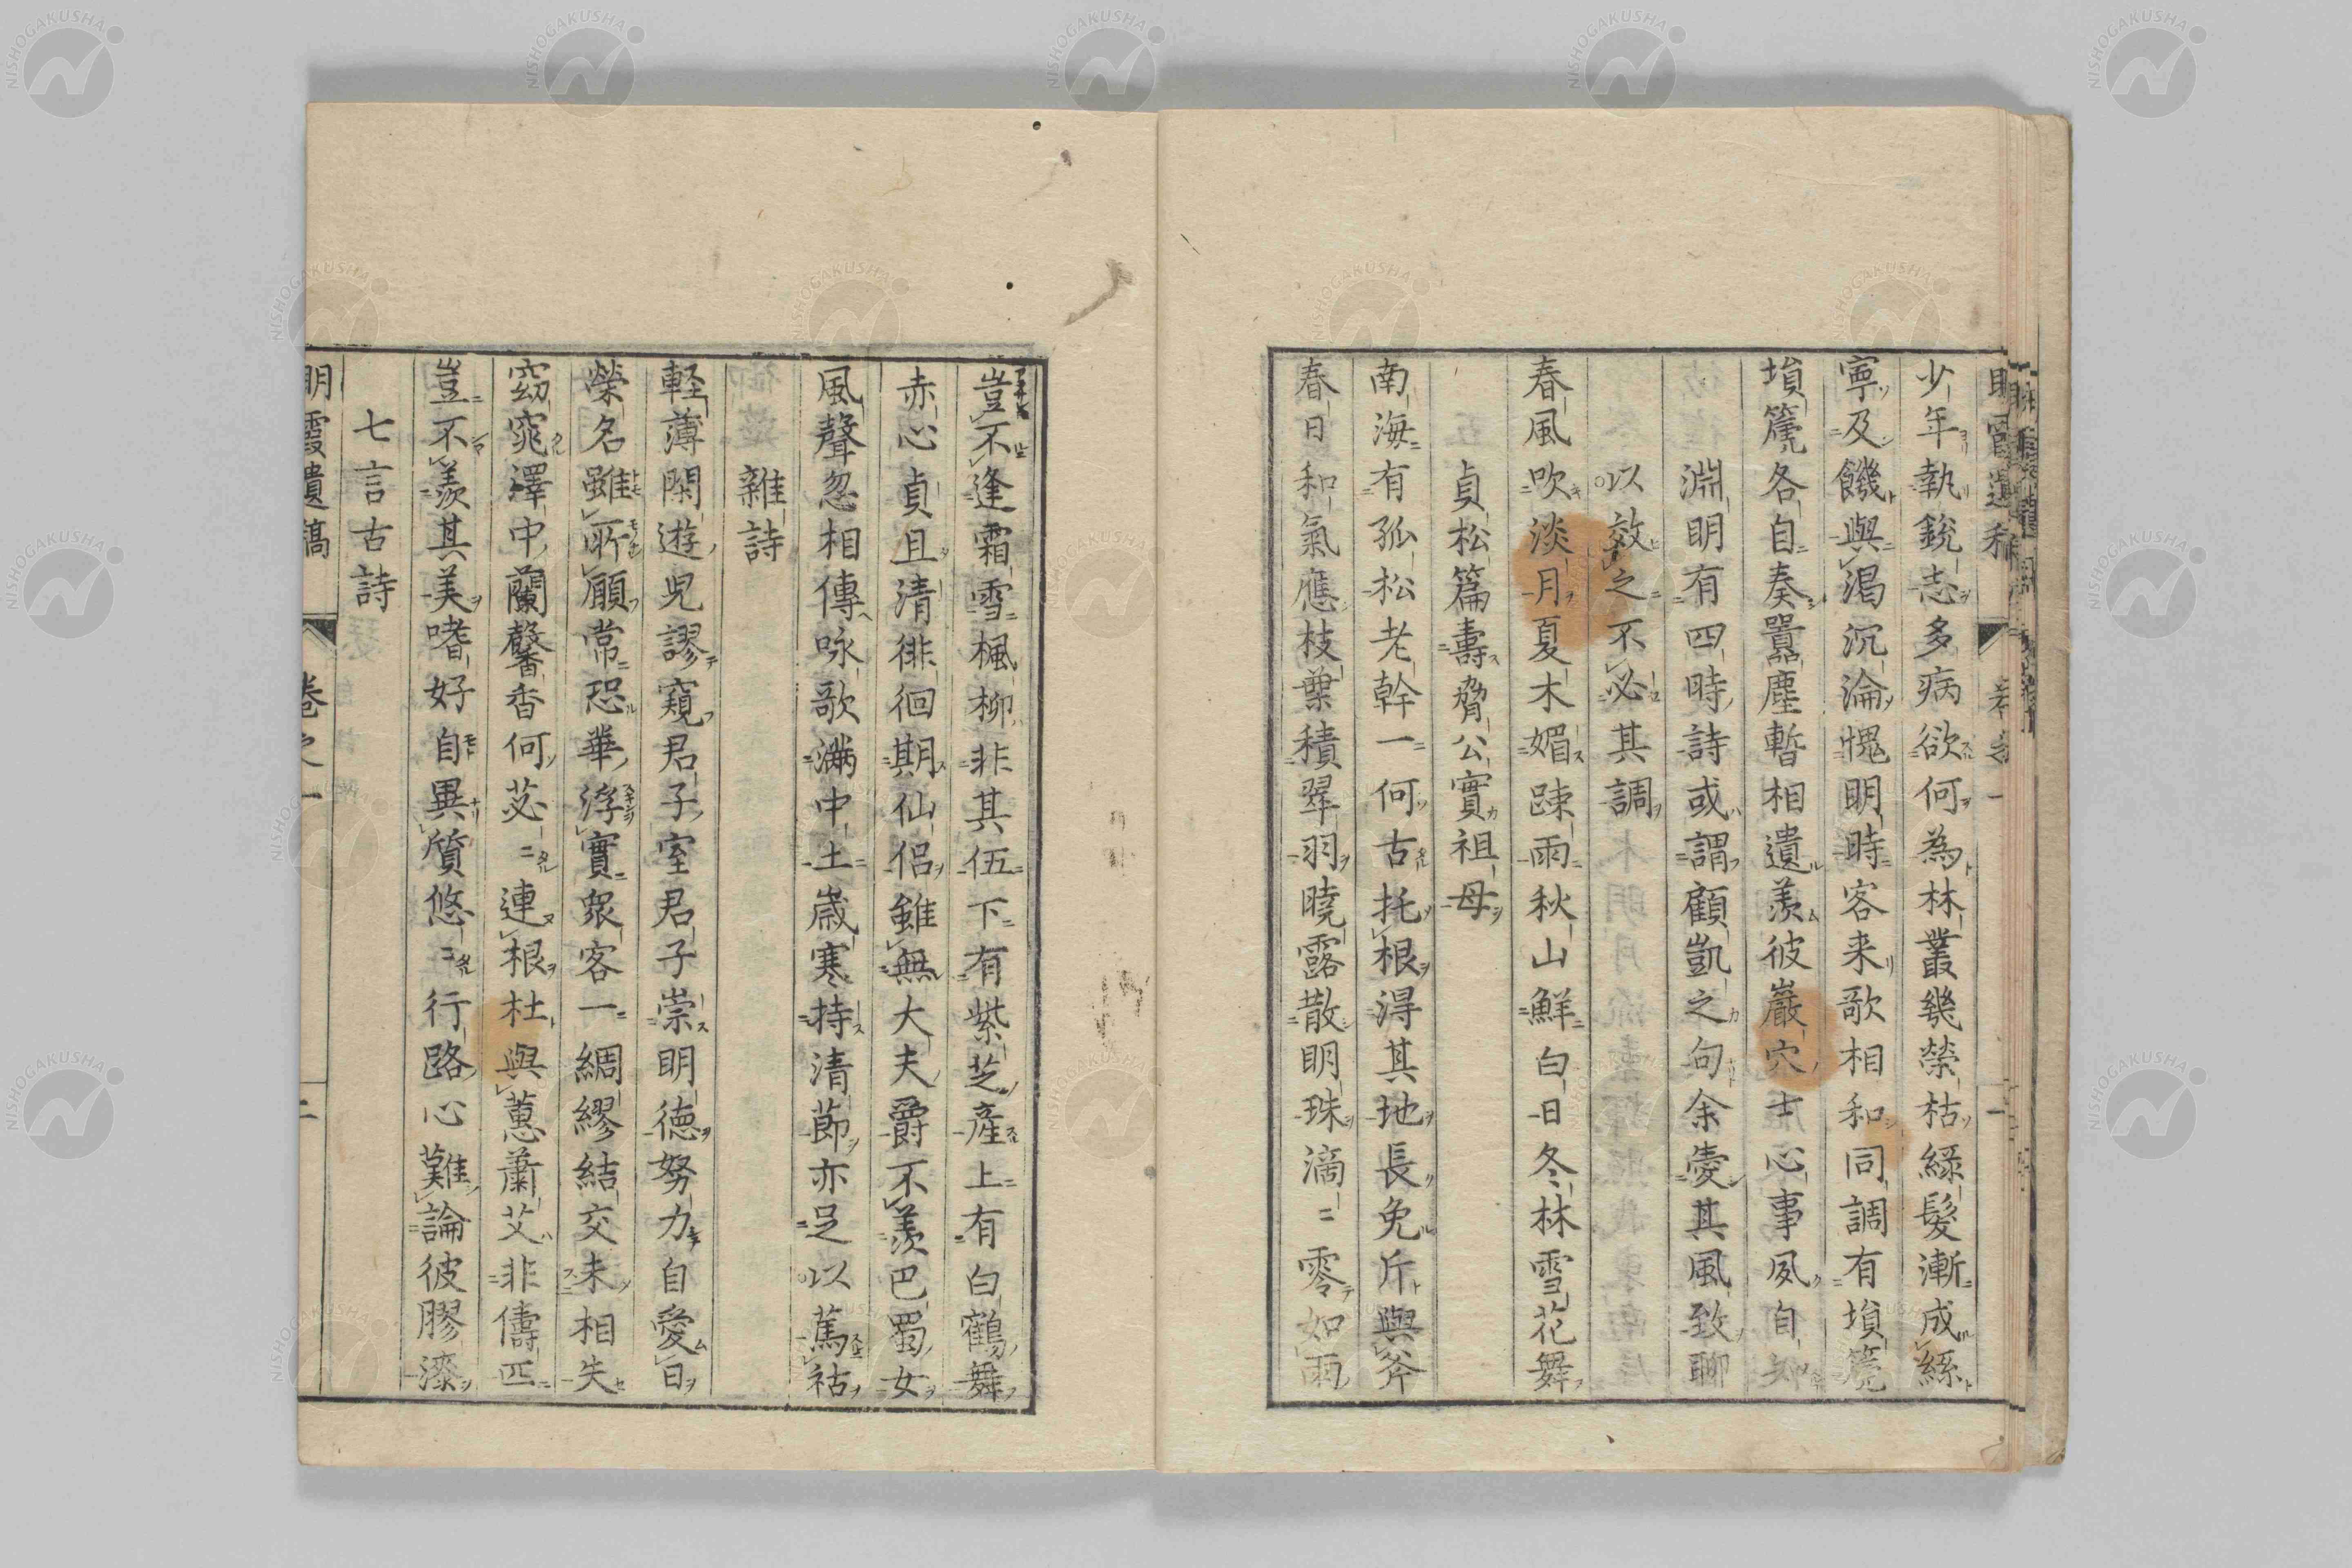 少年執銳志多病欲何為林叢幾榮枯綠髮漸成絲
寧及饑與渴沉淪愧明時客来歌相和同調有塤篪
塤篪各自奏囂塵暫相遺羨彼巖穴士心事夙自
淵明有四時詩或謂顧凱之句余愛其風致聊
以效之不必其調
春風吹淡月夏木媚踈雨秋山鮮白日冬林雪花舞
貞松篇壽脅公實祖母
南海有孤松老幹一何古托根得其地長免斤與斧
春日和氣應枝葉積翠羽曉露散明珠滴〻零如雨
豈不逢霜雪楓柳非其伍下有紫芝產上有白鶴舞
赤心貞且清徘徊期仙侶雖無大夫爵不羨巴蜀女
風聲忽相傳咏歌滿中土歲寒持清節亦足以蔫祜
雜詩
輕薄閑遊兒謬窺君子室君子崇明德努力自愛日
榮名雖所願常恐華浮實眾客一綢繆結交未相失
窈窕澤中蘭馨香何苾〻連根杜與蕙蕭艾非儔匹
豈不羨其美嗜好自異質悠〻行路心難論彼膠漆
七言古詩
明霞遺稿 卷之一
NISHOGAKUSHA